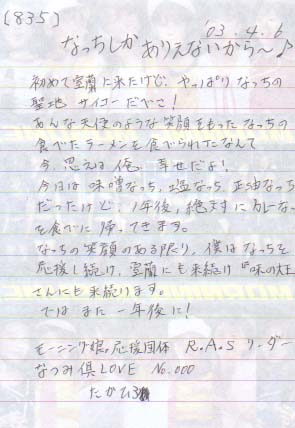 (835)
'03.4.6
なっちしか ありえないから〜♪
初めて室蘭に来たけど、やっぱりなっちの
聖地 サイコーだべさ!
あんな天使のような笑顔をもったなっちの
食べたラーメンを食べられたなんて
今、思えば俺、幸せだよ!
今日は味噌なっち、塩なっち、正油なっち
だったけど、1年後、絶対にカレーなっち
を食べに帰ってきます。
なっちの笑顔のある限り、僕はなっちを
応援し続け、室蘭にも来続け『味の大王』
さんにも来続けます。
ではまた一年後に!
モーニング娘。応援団体 R.A.S リーダー
なつみ倶LOVE No.000
たかひろ